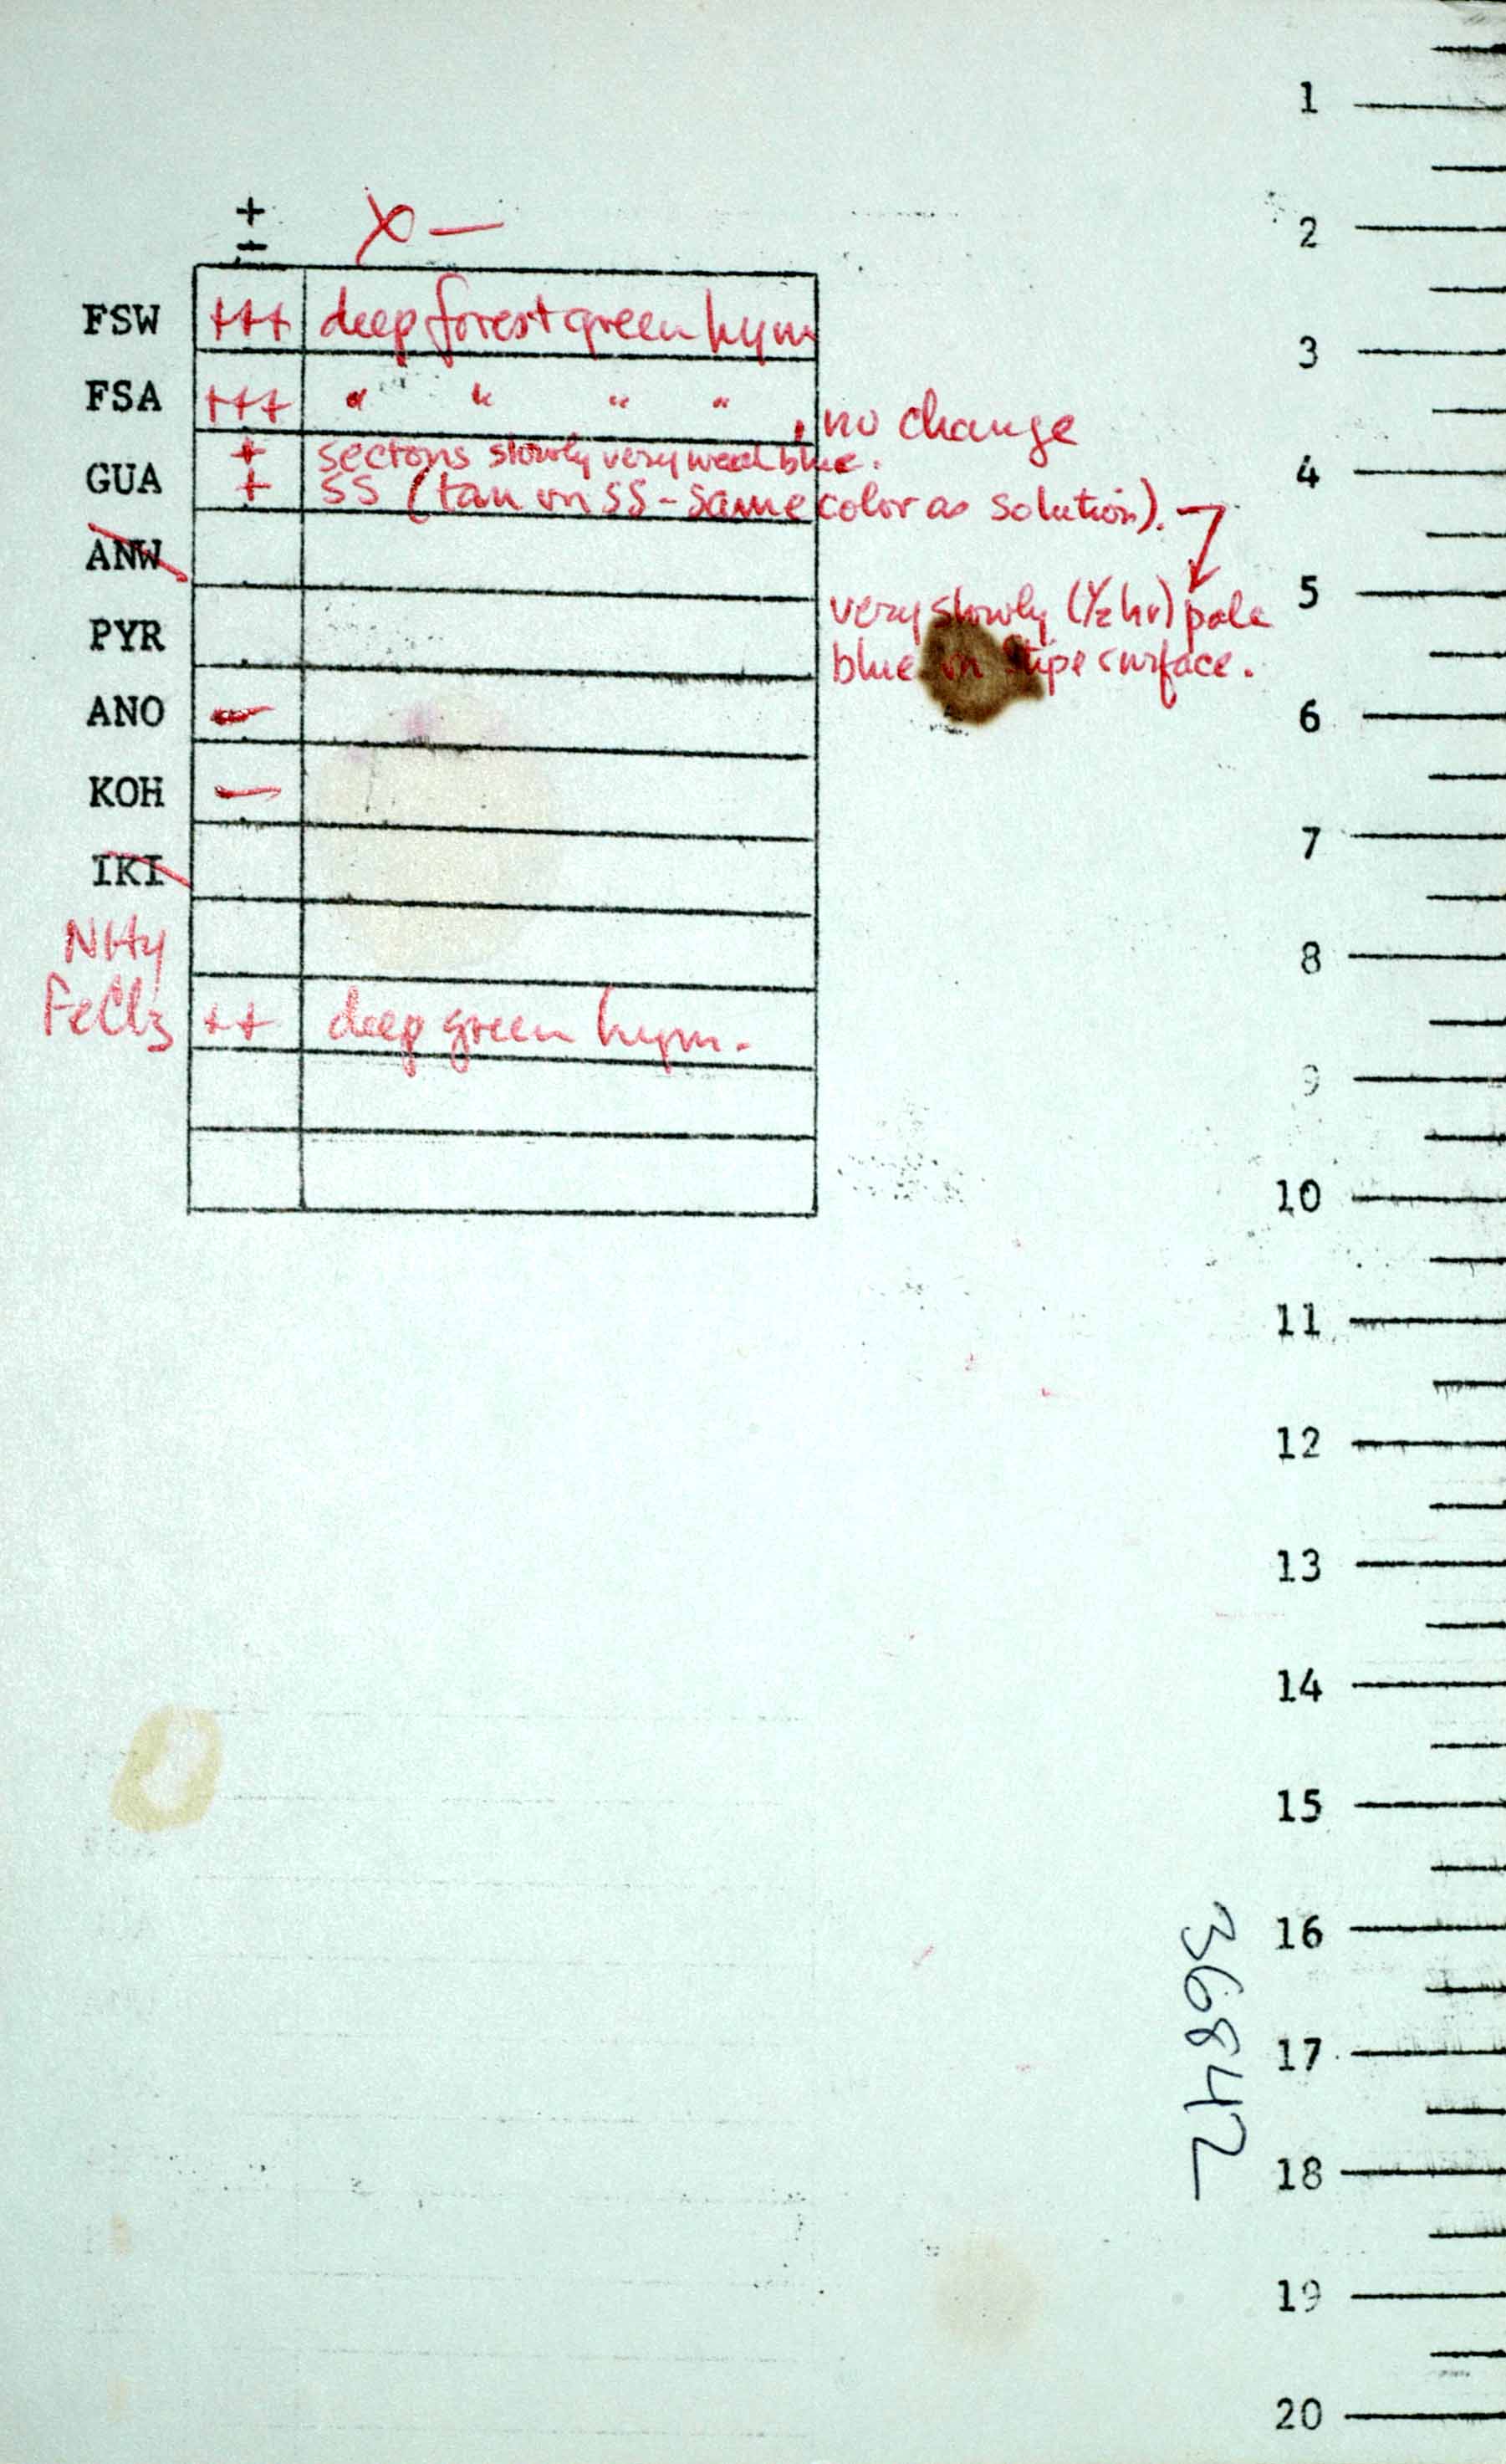 +
- X —
FSW +++ deep forest green hym
FSA +++ " " " " , no change
GUA + sectons slowly very weak blue.
+ SS (tan on SS - same color as solution).
ANW
very slowly (1/2 hr) pale
PYR blue on stipe surface.
ANO -
KOH -
IKI
NH4
FeCl3 ++ deep green hym.
1
2
3
4
5
6
7
8
9
10
11
12
13
14
15
16
17
18
19
20
36842